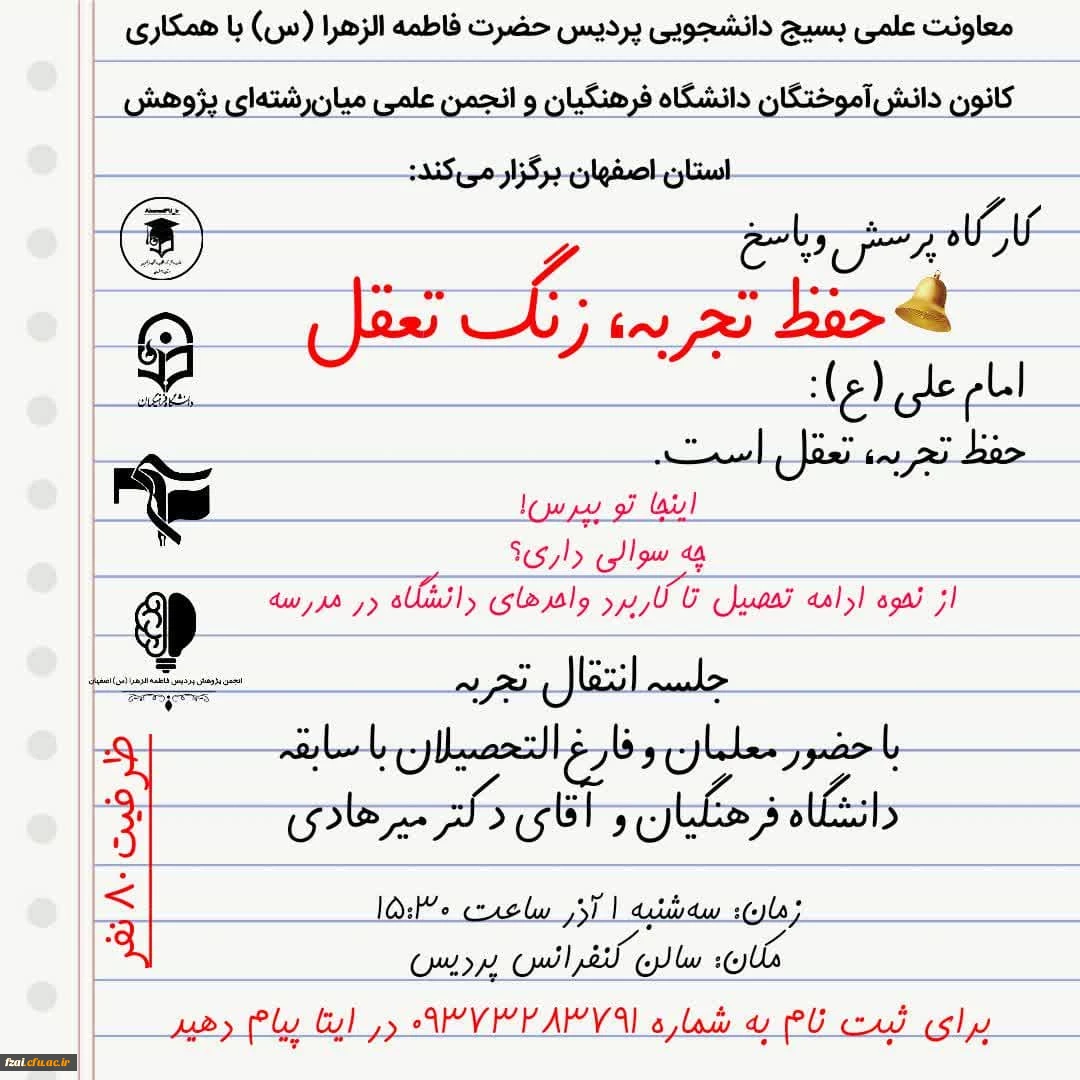 معاونت علمی بسیج دانشجویی پردیس حضرت فاطمه الزهرا (س) با همکاری
کانون دانش‌آموختگان دانشگاه فرهنگیان و انجمن علمی میان‌رشته‌ای پژوهش
استان اصفهان برگزار می‌کند:
کارگاه پرسش و پاسخ
حفظ تجربه، زنگ تعقل
امام علی (ع):
حفظ تجربه، تعقل است.
اینجا تو بپرس!
چه سوالی داری؟
از نحوه ادامه تحصیل تا کاربرد واحدهای دانشگاه در مدرسه
جلسه انتقال تجربه
با حضور معلمان و فارغ‌التحصیلان با سابقه
دانشگاه فرهنگیان و آقای دکتر میرهادی
زمان: سه‌شنبه ۱ آذر ساعت ۱۵:۳۰
مکان: سالن کنفرانس پردیس
برای ثبت نام به شماره ۰۹۳۷۳۲۸۳۷۹۱ در ایتا پیام دهید
ظرفیت ۸۰ نفر
دانشگاه فرهنگیان
انجمن پژوهش پردیس فاطمه الزهرا (س) اصفهان
fzai.cfu.ac.ir